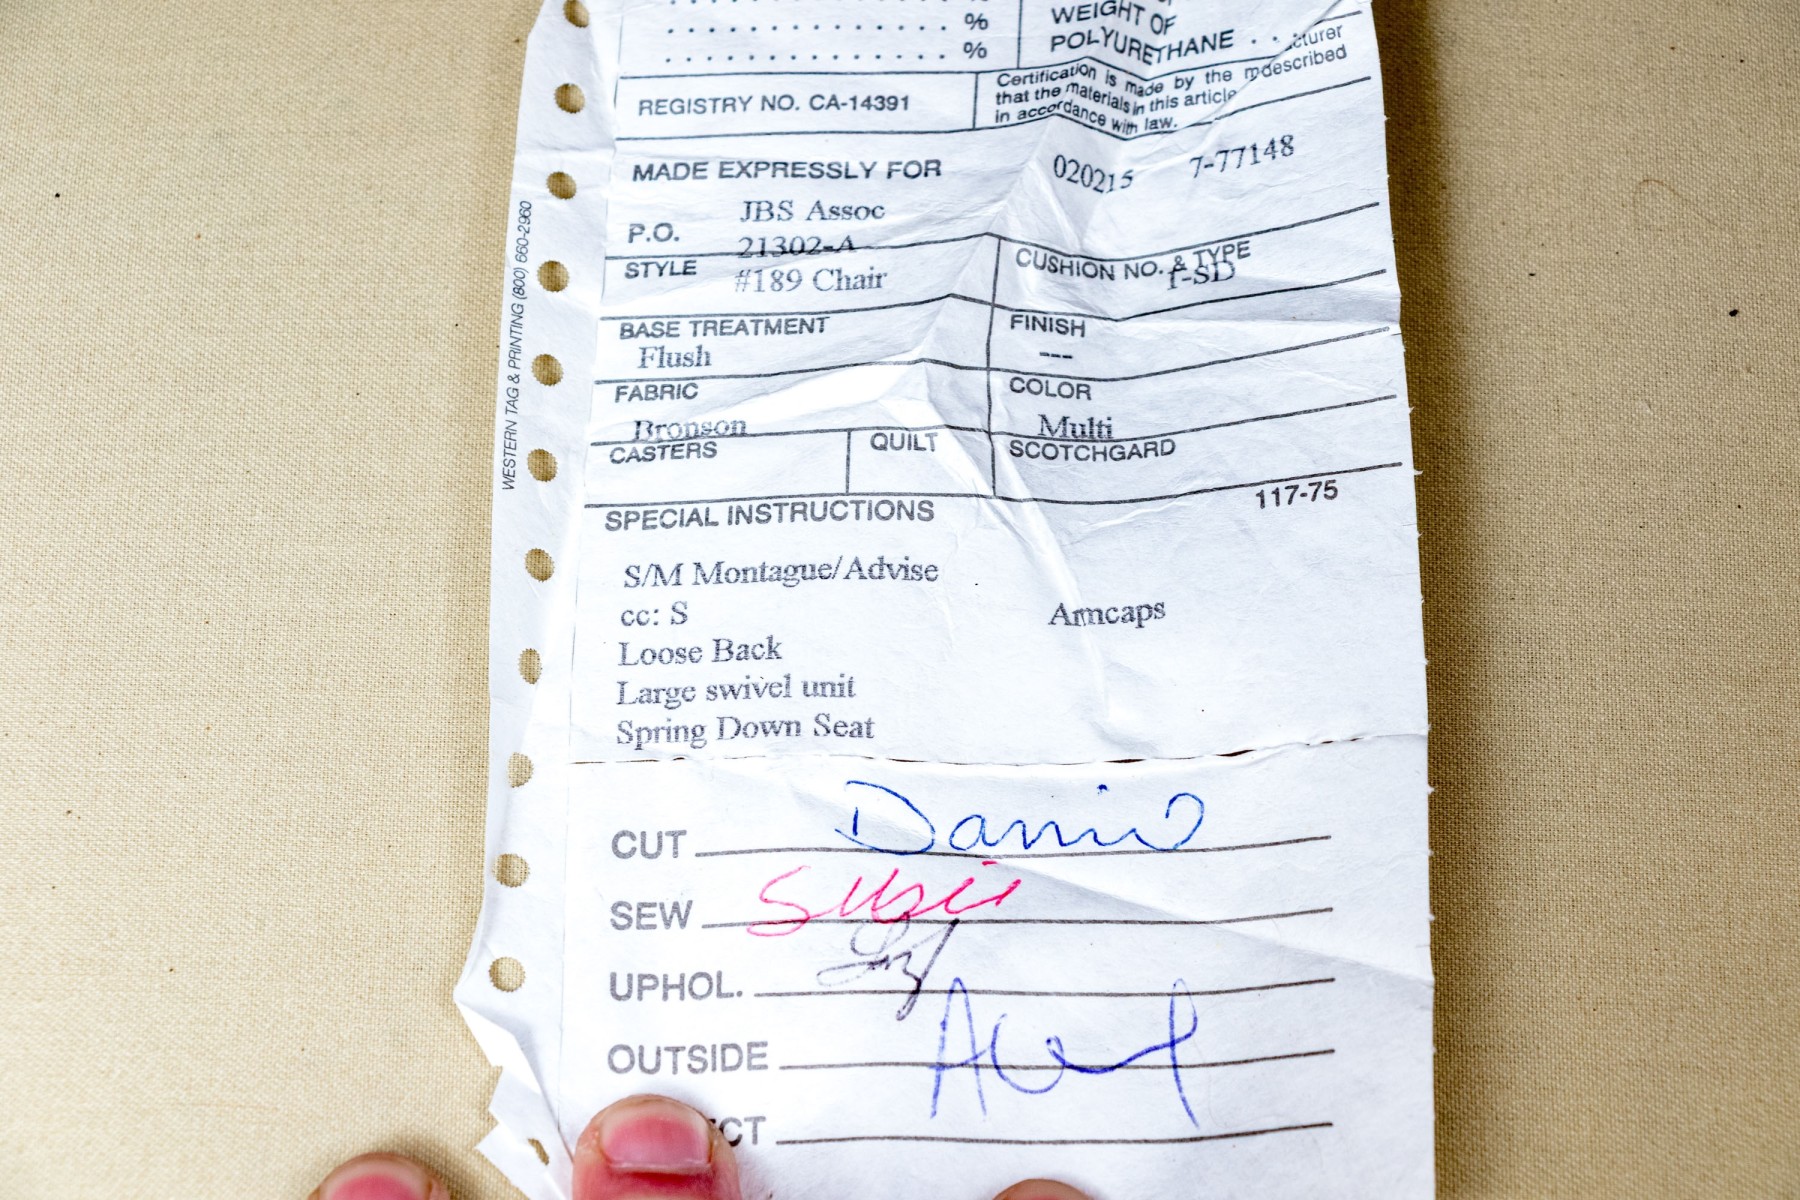 . . . . . . . . . . . . . . . %
. . . . . . . . . . . . . . . %
WEIGHT OF
POLYURETHANE . .
REGISTRY NO. CA-14391
Certification is made by the
described
that the materials in this article
in accordance with law.
MADE EXPRESSLY FOR
020215 7-77148
JBS Assoc
P.O. 21302-A
STYLE #189 Chair
CUSHION NO. & TYPE
1-SD
BASE TREATMENT
Flush
FINISH
---
FABRIC
Bronson
COLOR
Multi
CASTERS
QUILT
SCOTCHGARD
117-75
SPECIAL INSTRUCTIONS
S/M Montague/Advise
cc: S Armcaps
Loose Back
Large swivel unit
Spring Down Seat
CUT
SEW Susie
UPHOL.
OUTSIDE
CT
WESTERN TAG & PRINTING (800) 660-2960